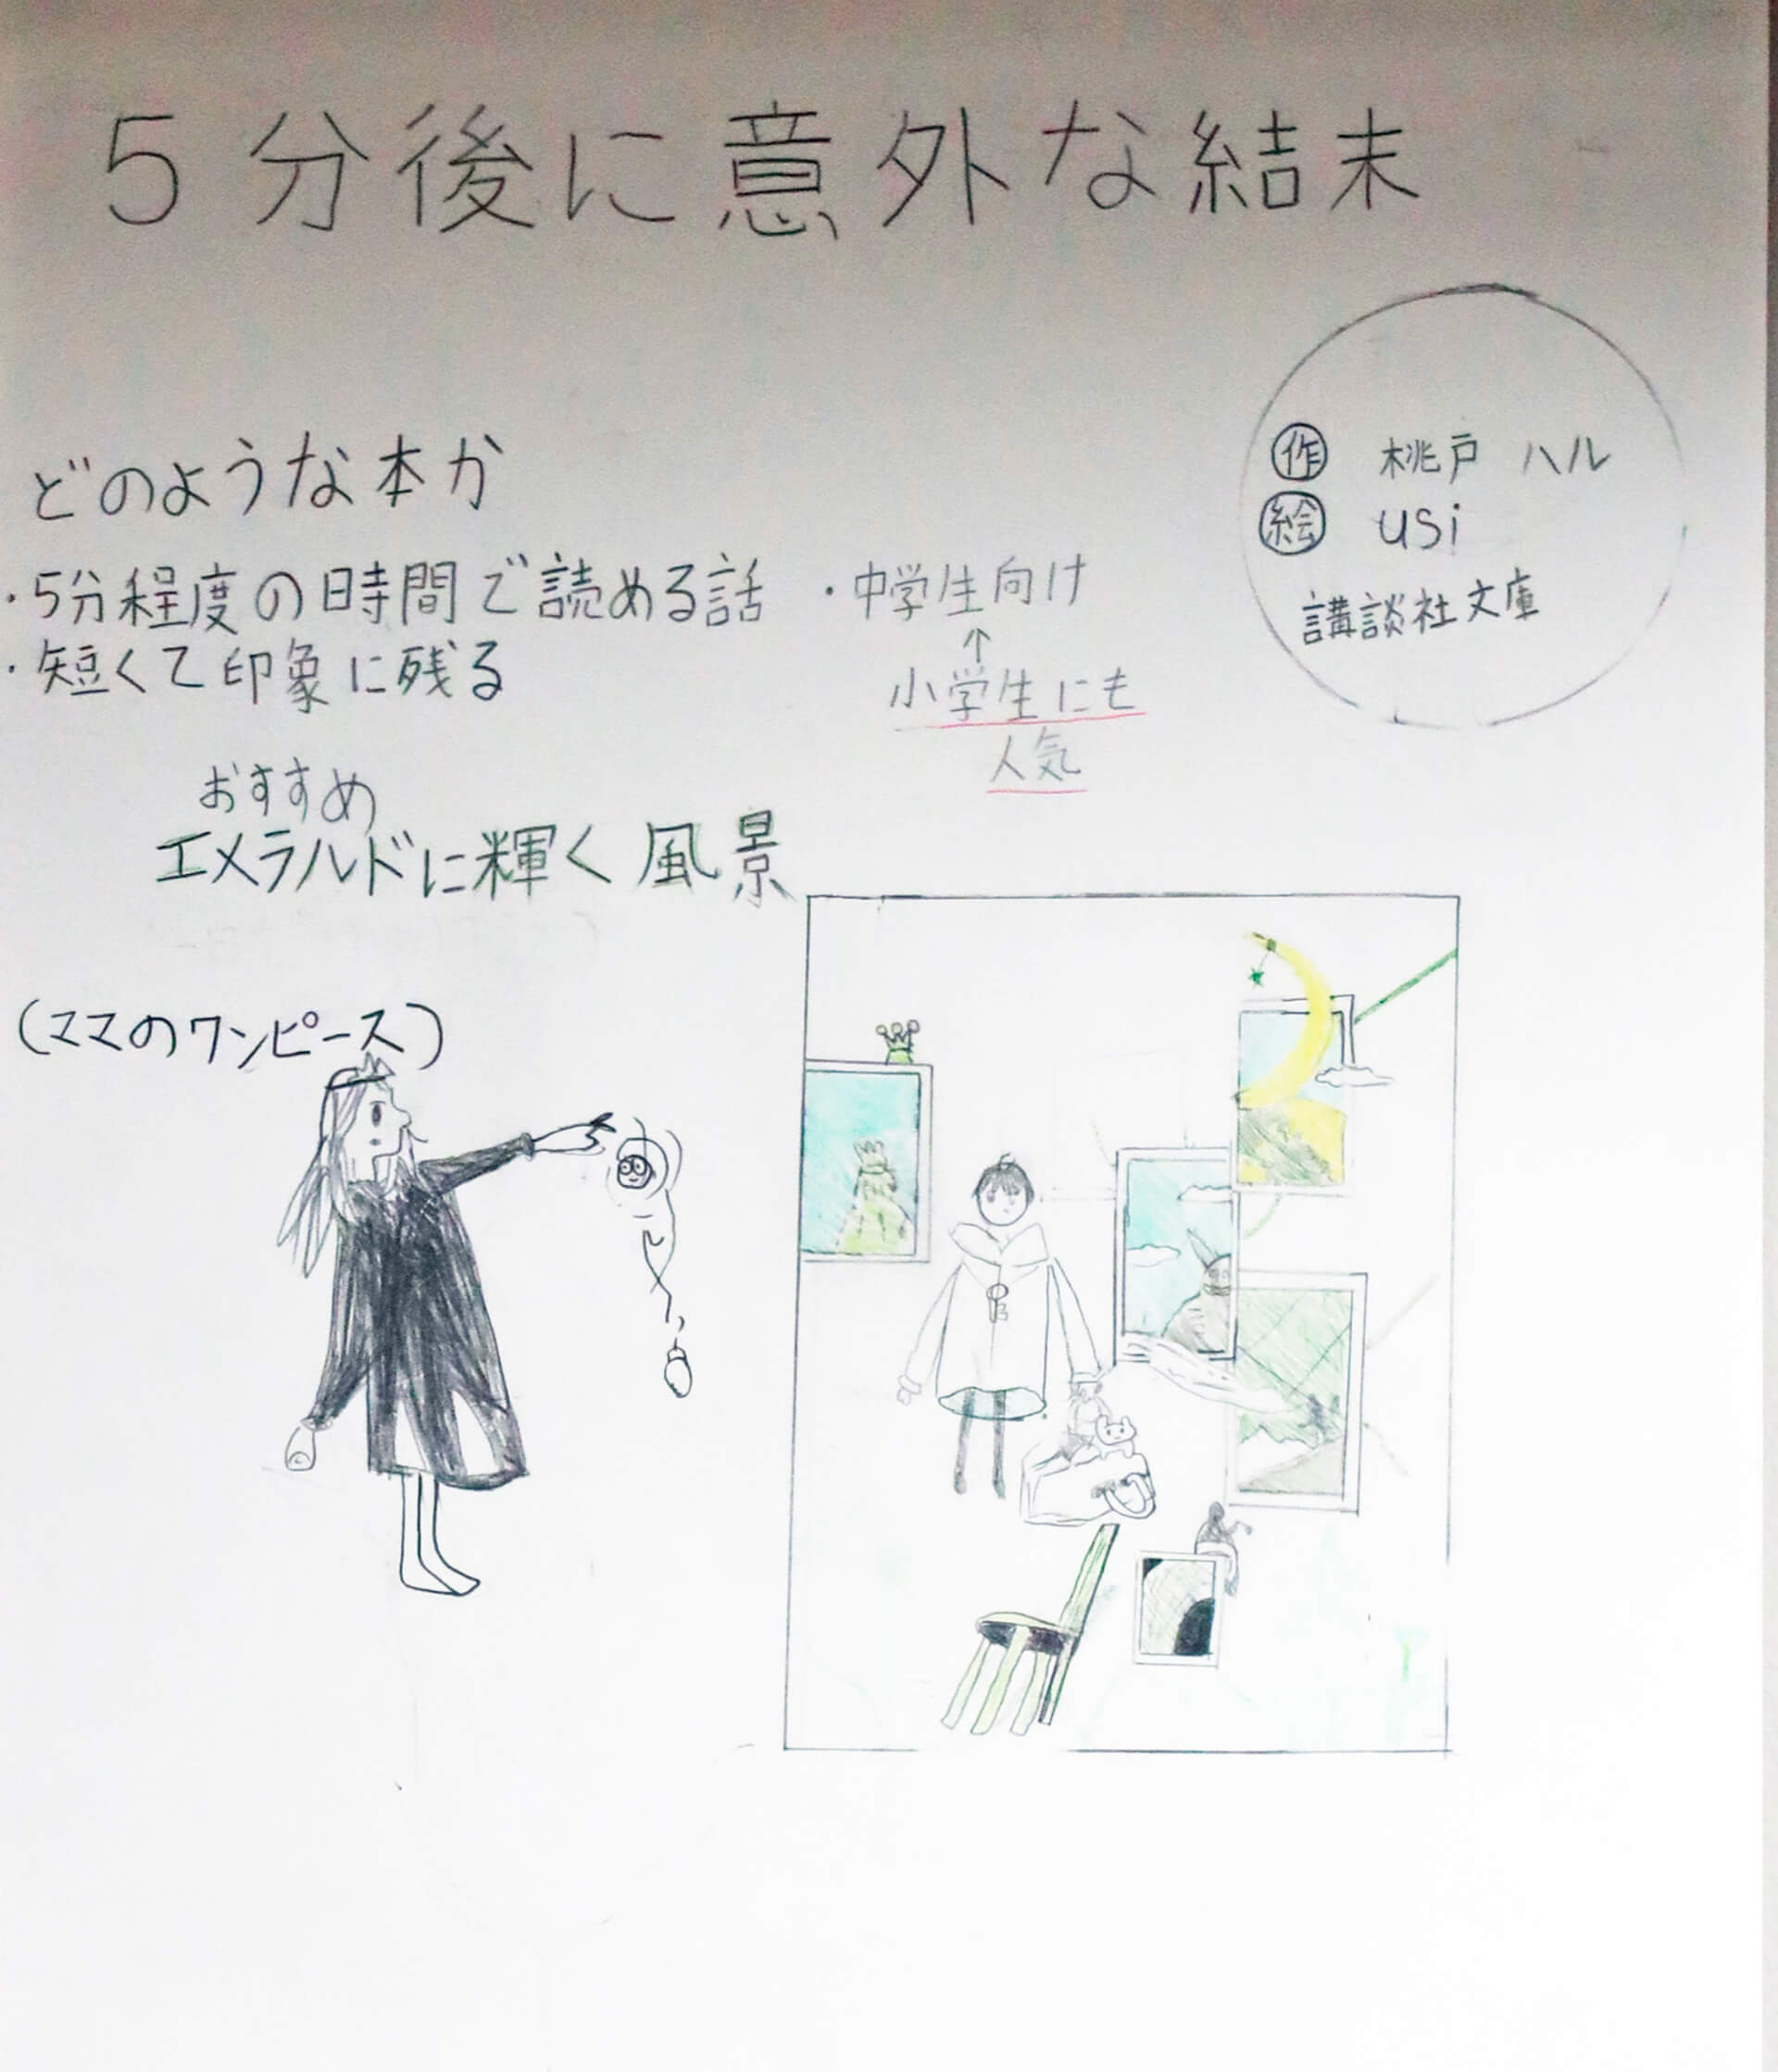 5分後に意外な結末
作 桃戸 ハル
絵 usi
講談社文庫
どのような本か
・5分程度の時間で読める話
・短くて印象に残る
・中学生向け
↑
小学生にも
人気
おすすめ
エメラルドに輝く風景
(ママのワンピース)